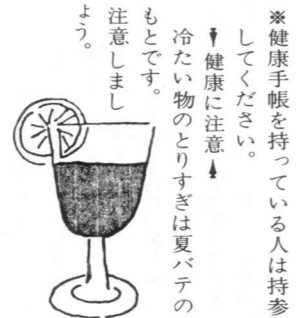 ※健康手帳を持っている人は持参
してください。
▼健康に注意▲
冷たい物のとりすぎは夏バテの
もとです。
注意しまし
ょう。